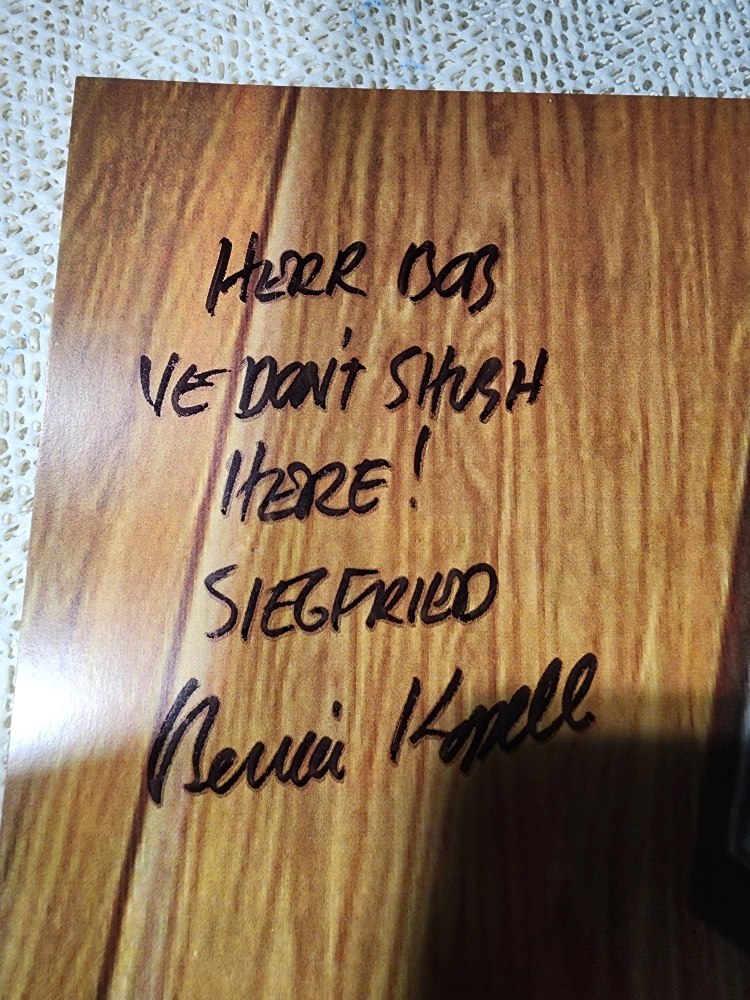 HERR BOB
VE DON'T SHUSH
HERE!
SIEGFRIED
Bernie Kopell